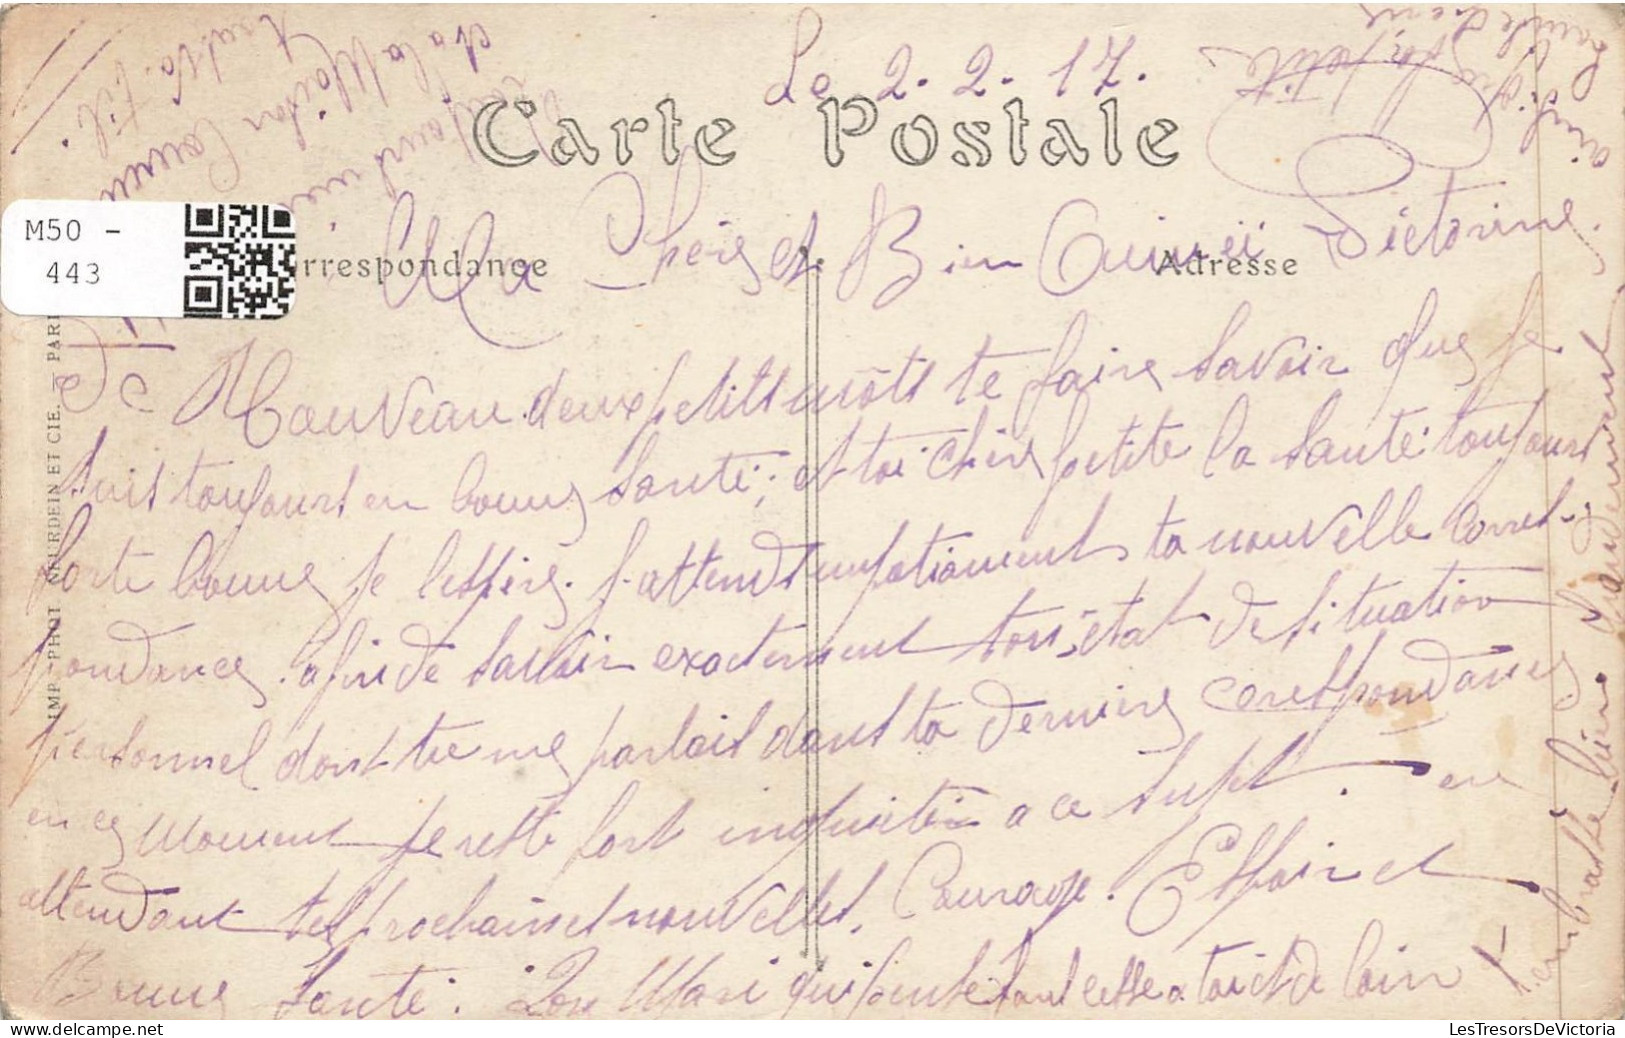 Le 2. 2. 17.
Carte Postale
Ma Chère et Bien Aimeé Victorine.
Correspondance
Adresse
M50 -
443
Nouveau deux petits môts te faire savoir que je
suis toujours en bonne Santé; et toi chère petite la Santé toujours
forte bonne je l'espère. J'attends impatiamment ta nouvelle Corres-
pondance, afin de savoir exactement ton état de situation
personnel dont tu me parlais dans ta dernière correspondance
en ce moment je reste fort inquiète a ce sujet. en
attendant tes prochaines nouvelles. Courage. Espoir et
Bonne Santé. Ton Mari qui pense sans cesse a toi et de loin
t'embrasse bien tendrement
ainsi que ta petite
IMP. PHOT. NEURDEIN ET CIE. — PARIS
LesTresorsDeVictoria.com